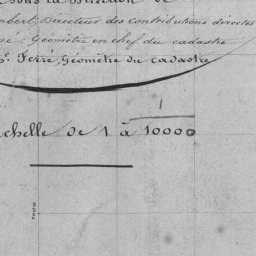 sous la Direction de
Directeur des contributions directes
Géomètre en chef du cadastre
Ferré, Géomètre du cadastre
1
chelle de 1 à 10000